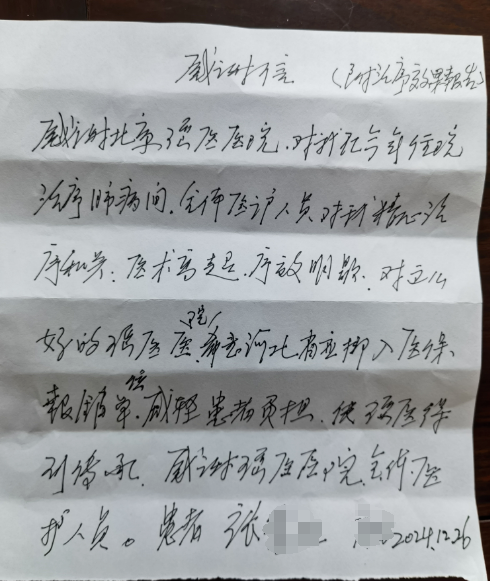 感谢信 (附治疗效果報告)
感谢北京瑶医医院,对我在今年住院
治疗肺病间,全体医护人员,对我精心治
疗和关,医术高超,疗效明显,对这么
好的瑶医医院,希望河北省立即入医保
報銷单位,减轻患者负担,使瑶医得
到传承,感谢瑶医医院全体医
护人员。患者 张 2024.12.26